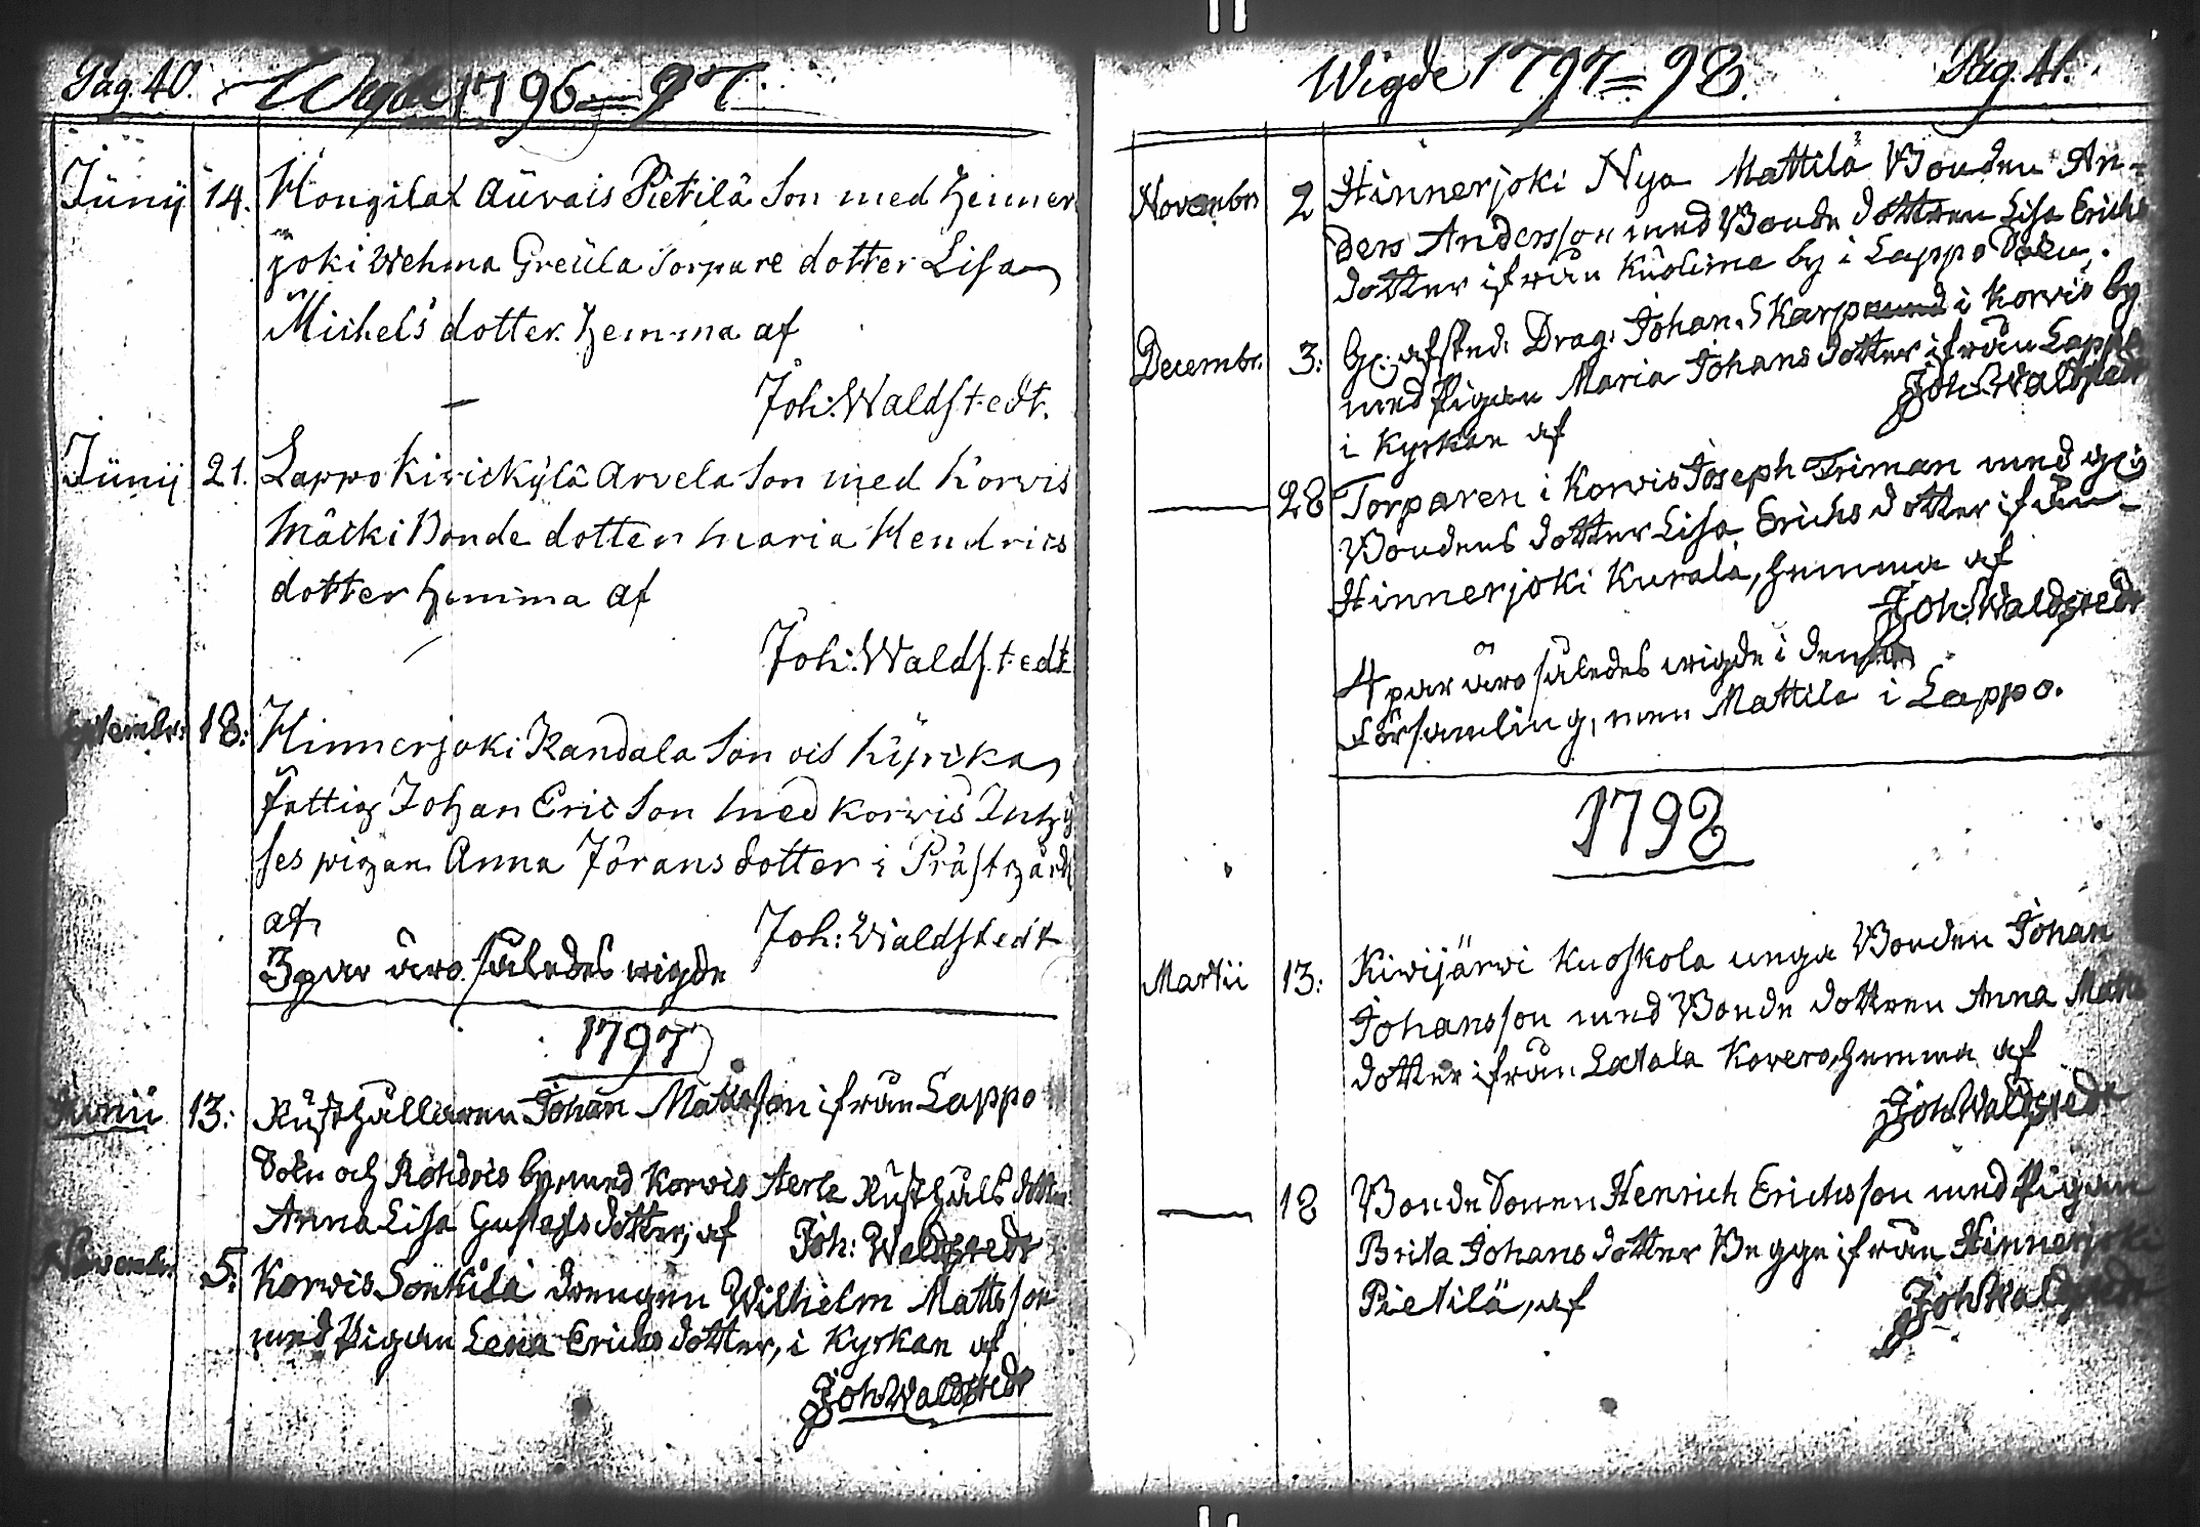 Pag. 40. Wigde 1796 = 97.
Junij 14. Hongilax Auvais Pietilä Son med Hinner
joki Wehma Greula Torpare dotter Lisa
Michels dotter hemma af
Joh: Waldstedt.
Junij 21. Lappo Kirickylä Arvela Son med Korvis
Mäcki Bonde dotter Maria Hendrics
dotter hemma af
Joh: Waldstedt
18: Hinnerjoki Kandala Son
fattig Johan Ericson med Korvis
pigan Anna Jörans dotter i Prästgård
af
Joh: Waldstedt
3 par äro således wigde
1797
13: Rusthållaren Johan Mattsson ifrån Lappo
Sokn och Rohdois by med Korvis Aerla Rusthåls dotter
Anna Lisa Gustafsdotter, af Joh: Waldstedt
November 5: Korvis drengen Wilhelm Mattsson
med Pigan Lena Erichs dotter, i Kyrkan af
Joh: Waldstedt
Wigde 1797 = 98. Pag. 41.
Novembr 2 Hinnerjoki Nya Mattila Bonden An-
ders Andersson med Bonde dottren Lisa Erichs
dotter ifrån Kuolima by i Lappo Sokn.
Decembr. 3: afsked. Drag. Johan Skarp i Korvis by
med Pigan Maria Johans dotter ifrån Lappo
i Kyrkan af Joh: Waldstedt
28 Torparen i Korvis Joseph Friman med
Bondens dotter Lisa Erichs dotter ifrån
Hinnerjoki Kurala, hemma af
Joh: Waldstedt
4 par äro således wigde i denna
församling, men Mattila i Lappo.
1798
Martii 13: Kivijärvi Kuoskola unga Bonden Johan
Johansson med Bonde dottren Anna Mats
dotter ifrån Latala Korvero, hemma af
Joh: Waldstedt
18 Bonde Sonen Henrich Erichsson med Pigan
Brita Johans dotter Begge ifrån Hinnerjoki
Pietilä, af Joh: Waldstedt